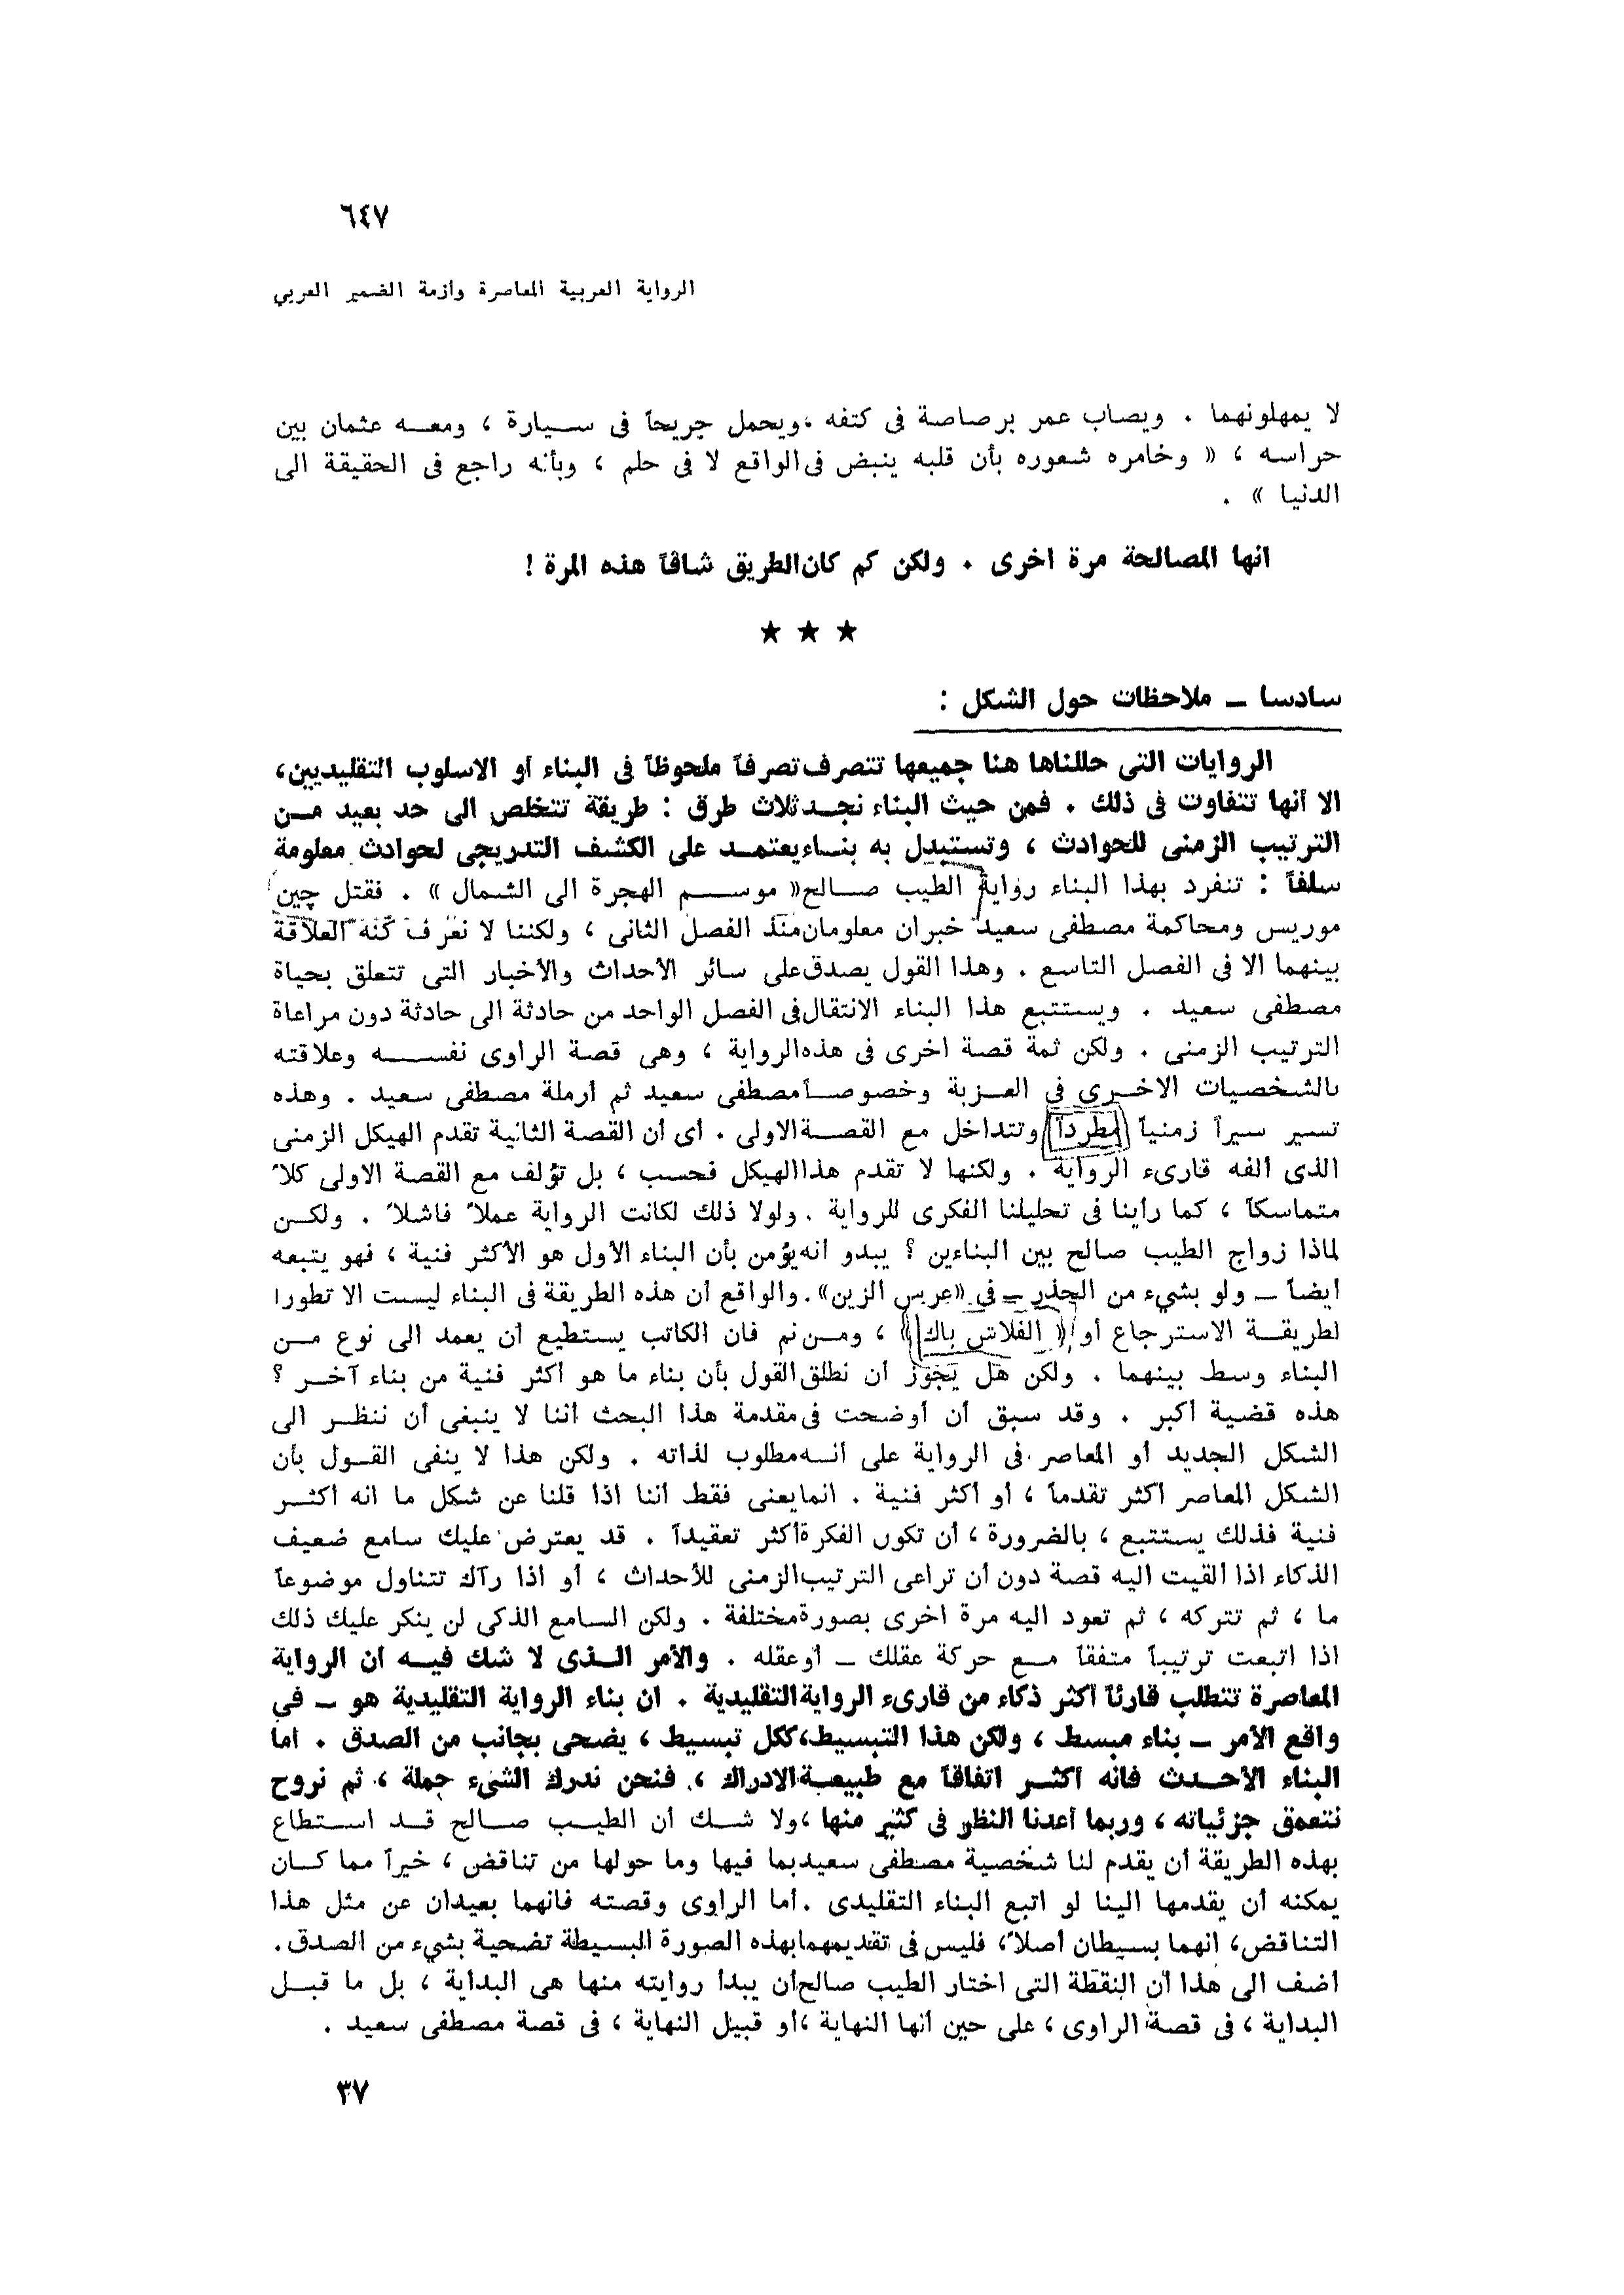 ٦٤٧
الرواية العربية المعاصرة وأزمة الضمير العربي
لا يمهلونهما . ويصاب عمر برصاصة فى كتفه ،ويحمل جريحاً فى سـيارة ، ومعـه عثمان بين
حراسه ، « وخامره شعوره بأن قلبه ينبض فى الواقع لا فى حلم ، وبأنه راجع فى الحقيقة الى
الدنيا » .
انها المصالحة مرة اخرى . ولكن كم كان الطريق شاقاً هذه المرة !
★ ★ ★
سادسا ـ ملاحظات حول الشكل :
الروايات التى حللناها هنا جميعها تتصرف تصرفاً ملحوظاً فى البناء أو الاسلوب التقليديين،
الا أنها تتفاوت فى ذلك . فمن حيث البناء نجد ثلاث طرق : طريقة تتخلص الى حد بعيد مـن
الترتيب الزمنى للحوادث ، وتستبدل به بنـاء يعتمـد على الكشف التدريجى لحوادث معلومة
سلفاً : تنفرد بهذا البناء رواية الطيب صـالح « موسـم الهجرة الى الشمال » . فقتل چين
موريس ومحاكمة مصطفى سعيد خبران معلومان منذ الفصل الثانى ، ولكننا لا نعرف كنه العلاقة
بينهما الا فى الفصل التاسع . وهذا القول يصدق على سائر الأحداث والأخبار التى تتعلق بحياة
مصطفى سعيد . ويستتبع هذا البناء الانتقال فى الفصل الواحد من حادثة الى حادثة دون مراعاة
الترتيب الزمنى . ولكن ثمة قصة اخرى فى هذه الرواية ، وهى قصة الراوى نفسـه وعلاقته
بالشخصيات الاخـرى فى العـزبة وخصوصـاً مصطفى سعيد ثم أرملة مصطفى سعيد . وهذه
تسير سيراً زمنياً مطرداً وتتداخل مع القصـة الاولى . أى أن القصة الثانية تقدم الهيكل الزمنى
الذى ألفه قارىء الرواية . ولكنها لا تقدم هذا الهيكل فحسب ، بل تؤلف مع القصة الاولى كلاً
متماسكاً ، كما رأينا فى تحليلنا الفكرى للرواية . ولولا ذلك لكانت الرواية عملاً فاشلاً . ولكـن
لماذا زواج الطيب صالح بين البناءين ؟ يبدو انه يؤمن بأن البناء الأول هو الأكثر فنية ، فهو يتبعه
أيضاً ـ ولو بشيء من الحذر ـ فى «عرس الزين» . والواقع أن هذه الطريقة فى البناء ليست الا تطورا
لطريقـة الاسترجاع أو « الفلاش باك » ، ومـن ثم فان الكاتب يستطيع أن يعمد الى نوع مـن
البناء وسط بينهما . ولكن هل يجوز أن نطلق القول بأن بناء ما هو أكثر فنية من بناء آخـر ؟
هذه قضية أكبر . وقد سبق أن أوضحت فى مقدمة هذا البحث أننا لا ينبغى أن ننظـر الى
الشكل الجديد أو المعاصر فى الرواية على أنـه مطلوب لذاته . ولكن هذا لا ينفى القـول بأن
الشكل المعاصر أكثر تقدماً ، أو أكثر فنية . انما يعنى فقط أننا اذا قلنا عن شكل ما انه أكثـر
فنية فذلك يستتبع ، بالضرورة ، أن تكون الفكرة أكثر تعقيداً . قد يعترض عليك سامع ضعيف
الذكاء اذا ألقيت اليه قصة دون أن تراعى الترتيب الزمنى للأحداث ، أو اذا رآك تتناول موضوعاً
ما ، ثم تتركه ، ثم تعود اليه مرة اخرى بصورة مختلفة . ولكن السامع الذكى لن ينكر عليك ذلك
اذا اتبعت ترتيباً متفقاً مـع حركة عقلك ـ أو عقله . والأمر الـذى لا شك فيـه أن الرواية
المعاصرة تتطلب قارئاً أكثر ذكاء من قارىء الرواية التقليدية . ان بناء الرواية التقليدية هو ـ في
واقع الأمر ـ بناء مبسط ، ولكن هذا التبسيط، ككل تبسيط ، يضحى بجانب من الصدق . أما
البناء الأحـدث فانه أكثـر اتفاقاً مع طبيعـة الادراك ، فنحن ندرك الشىء جملة ، ثم نروح
نتعمق جزئياته ، وربما أعدنا النظر فى كثير منها ،ولا شـك أن الطيـب صـالح قـد اسـتطاع
بهذه الطريقة أن يقدم لنا شخصية مصطفى سعيد بما فيها وما حولها من تناقض ، خيراً مما كـان
يمكنه أن يقدمها الينا لو اتبع البناء التقليدى . أما الراوى وقصته فانهما بعيدان عن مثل هذا
التناقض، انهما بسيطان أصلاً، فليس فى تقديمهما بهذه الصورة البسيطة تضحية بشيء من الصدق.
أضف الى هذا أن النقطة التى اختار الطيب صالح أن يبدأ روايته منها هى البداية ، بل ما قبـل
البداية ، فى قصة الراوى ، على حين أنها النهاية ،أو قبيل النهاية ، فى قصة مصطفى سعيد .
٣٧